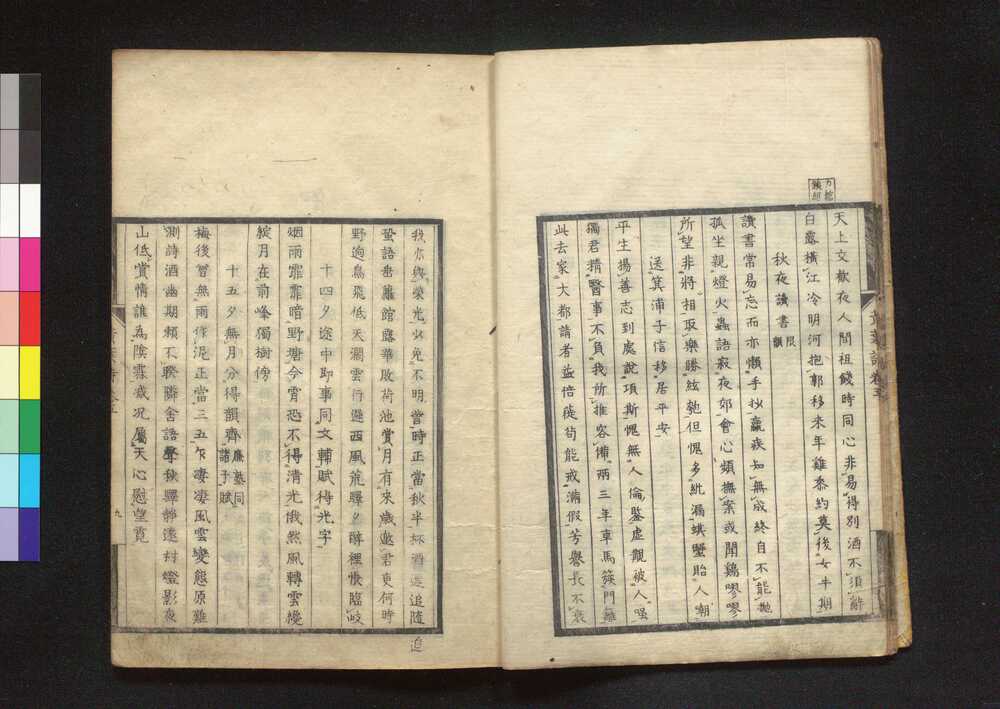 天上文歡夜人間祖餞時同心非易得別酒不須辭
白露橫江冷明河抱郭移来年雞黍約莫後女牛期
秋夜讀書 限韻
讀書常易忘而亦懶手抄羸疾知無成終自不能拋
孤坐親燈火蟲語寂夜郊會心頻撫案或聞鷄嘐嘐
所望非將相取樂勝絃匏但愧多紕漏蜞蟹貽人嘲
送箕浦子信移居平安
平生揚善志到處說項斯愧無人倫鑒虛覩被人嗤
獨君精醫事不負我所推客備兩三年車馬簇門籬
此去家大都請者益倍蓰苟能戒滿假芳譽長不衰
黃葉詩 卷五
我亦與榮光 免不明當時正當秋半杯酒 追隨
蛩語 籬館露華敗荷池賞月有来歲邀君更何時
野逈鳥飛低天濶雲行 西風荒驛夕醉裡悵臨岐
十四夕途中即事同文輔賦得光字
烟雨霏霏暗野塘今宵恐不得清光俄然風轉雲纔
綻月在前峰獨樹傍
十五夕無月分得韻齊 廉塾同諸子賦
梅後曾無雨作泥正當三五乍凄凄風雲變態原難
測詩酒幽期賴不睽隣舍語學秋驛靜遠村燈影夜
山低賞情誰為陰霖減况屬天心慰望霓
九
追